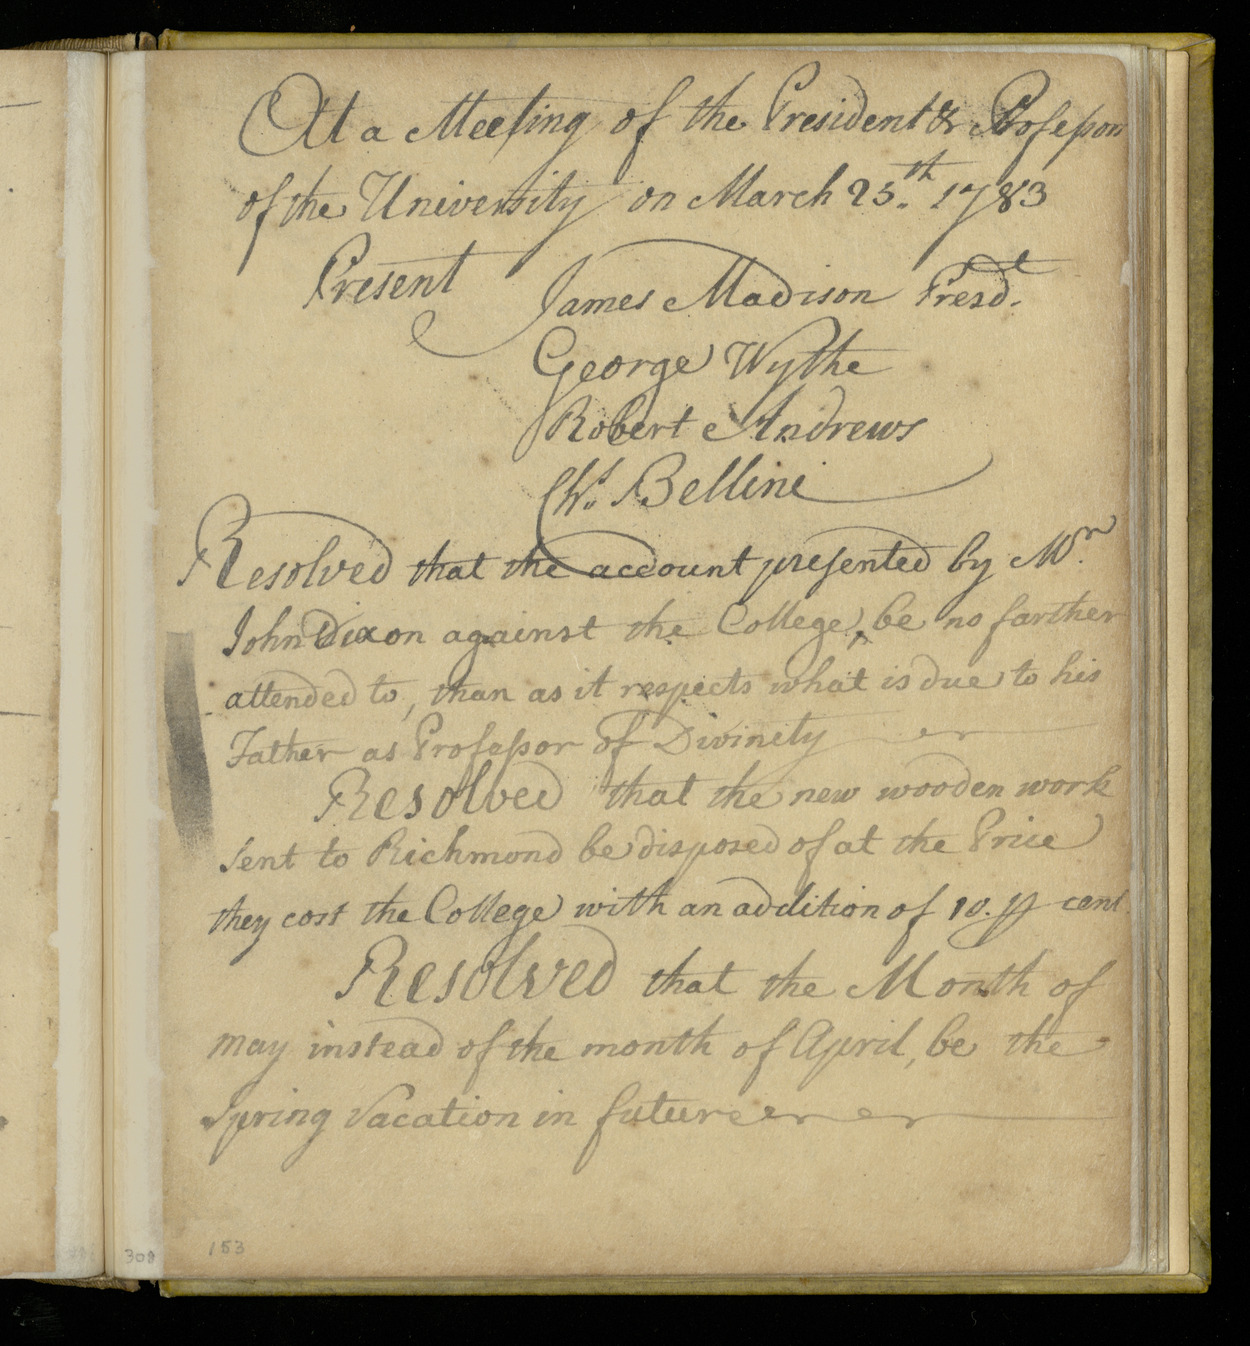 At a Meeting of the President & Professors
of the University on March 25.th 1783
Present James Madison Presd.t
George Wythe
Robert Andrews
Chs. Bellini
Resolved that the account presented by Mr.
John Dixon against the College, be no farther
attended to, than as it respects what is due to his
Father as Professor of Divinity
Resolved that the new wooden work
sent to Richmond be disposed of at the Price
they cost the College with an addition of 10. ⅌ cent
Resolved that the Month of
may instead of the month of April, be the
Spring Vacation in future
153
308